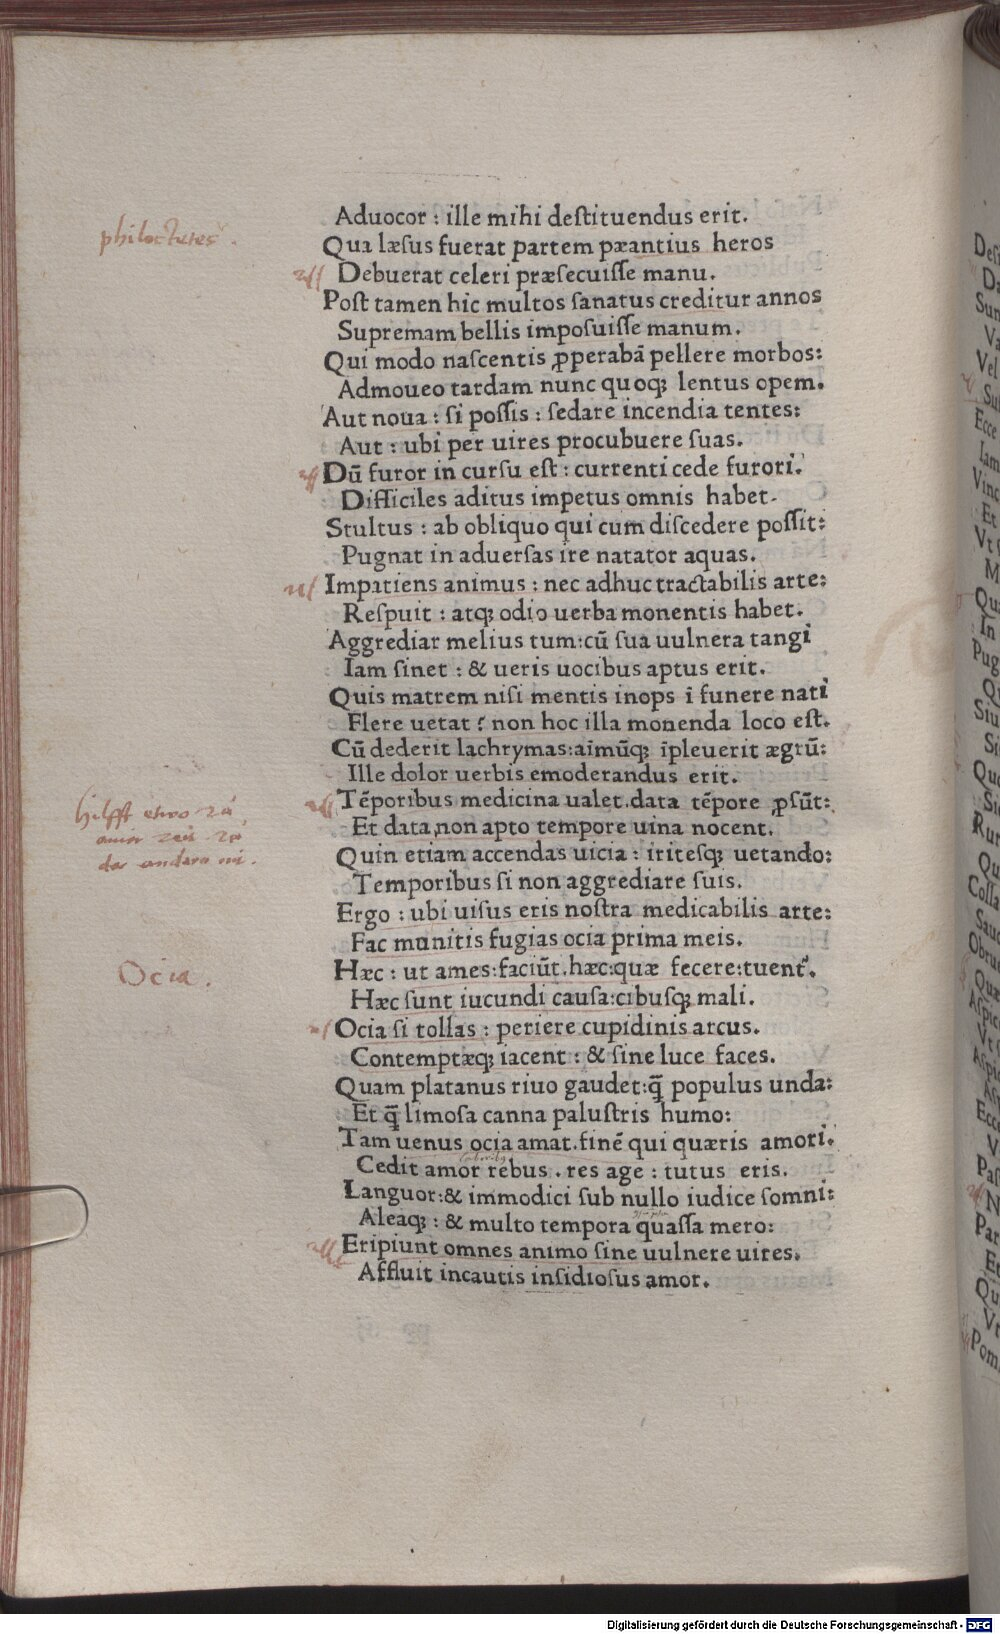 philoctetes .
Aduocor : ille mihi deſtituendus erit.
Qua læſus fuerat partem pæantius heros
Debuerat celeri præſecuiſſe manu.
Poſt tamen hic multos ſanatus creditur annos
Supremam bellis impoſuiſſe manum.
Qui modo naſcentis ꝓperabã pellere morbos:
Admoueo tardam nunc quoqꝫ lentus opem.
Aut noua : ſi poſſis : ſedare incendia tentes:
Aut : ubi per uires procubuere ſuas.
Dũ furor in curſu eſt : currenti cede furori.
Difficiles aditus impetus omnis habet.
Stultus : ab obliquo qui cum diſcedere poſſit:
Pugnat in aduerſas ire natator aquas.
Impatiens animus : nec adhuc tractabilis arte:
Reſpuit : atqꝫ odio uerba monentis habet.
Aggrediar melius tum:cũ ſua uulnera tangi
Iam ſinet : & ueris uocibus aptus erit.
Quis matrem niſi mentis inops ĩ funere nati
Flere uetat ? non hoc illa monenda loco eſt.
Cũ dederit lachrymas:aĩmũqꝫ ĩpleuerit ægrũ:
Ille dolor uerbis emoderandus erit.
Tẽporibus medicina ualet.data tẽpore ꝓſũt:
Et data,non apto tempore uina nocent.
Quin etiam accendas uicia : iriteſqꝫ uetando:
Temporibus ſi non aggrediare ſuis.
Ergo : ubi uiſus eris noſtra medicabilis arte:
Fac munitis fugias ocia prima meis.
Ocia .
Hæc : ut ames:faciũt.hæc:quæ fecere:tuent᷑.
Hæc ſunt iucundi cauſa:cibuſqꝫ mali.
Ocia ſi tollas : periere cupidinis arcus.
Contemptæqꝫ iacent : & ſine luce faces.
Quam platanus riuo gaudet:q̃ populus unda:
Et q̃ limoſa canna paluſtris humo:
Tam uenus ocia amat.finẽ qui quæris amori.
Cedit amor rebus . res age : tutus eris.
Languor:& immodici ſub nullo iudice ſomni:
Aleaqꝫ : & multo tempora quaſſa mero:
Eripiunt omnes animo ſine uulnere uires.
Affluit incautis inſidioſus amor.
Digitalisierung gefördert durch die Deutsche Forschungsgemeinschaft - DFG